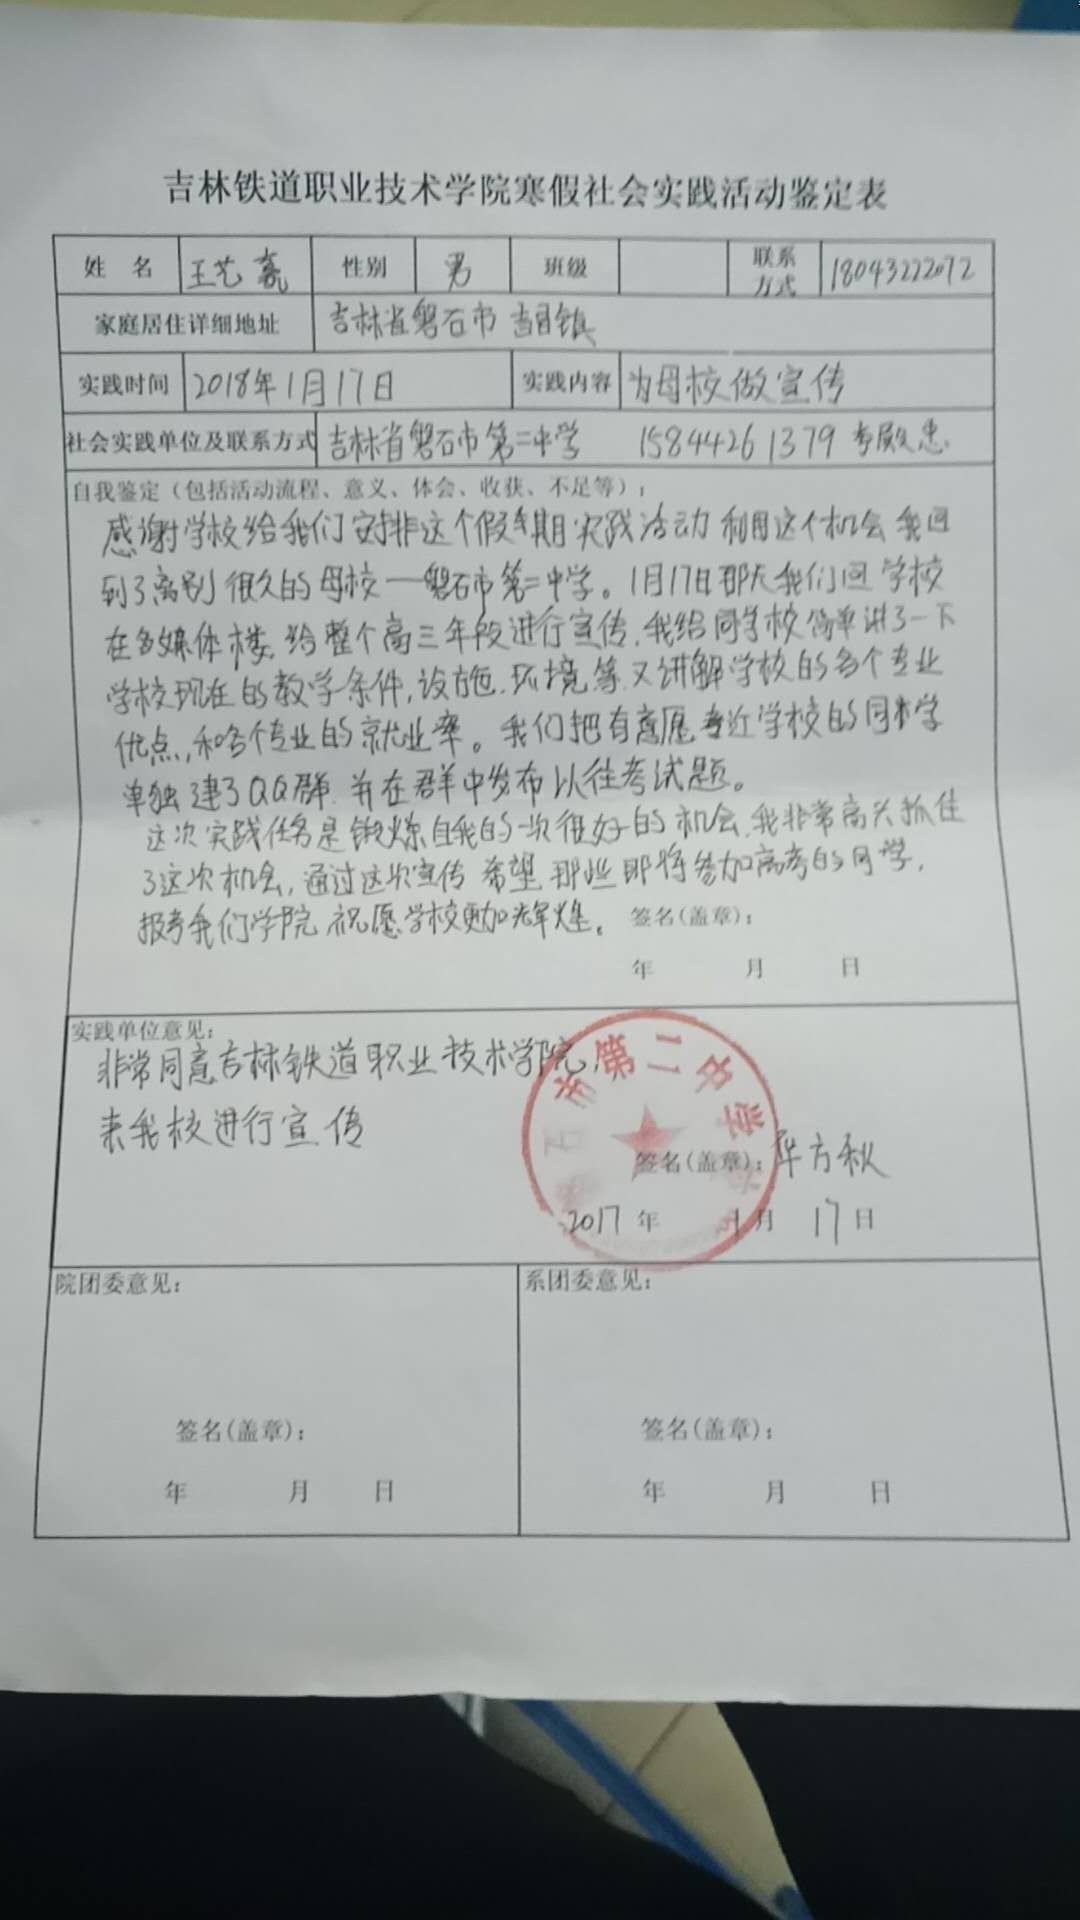 吉林铁道职业技术学院寒假社会实践活动鉴定表
姓 名 王艺 性别 男 班级 联系方式 18043222072
家庭居住详细地址 吉林省磐石市 镇
实践时间 2018年1月17日 实践内容 为母校做宣传
社会实践单位及联系方式 吉林省磐石市第二中学 15844261379
自我鉴定（包括活动流程、意义、体会、收获、不足等）：
感谢学校给我们安排这个假期实践活动 利用这个机会 我回
到了离别很久的母校一磐石市第二中学。1月17日那天我们回学校
在多媒体楼,给整个高三年段进行宣传,我给同学校简单讲了一下
学校现在的教学条件,设施.环境等.又讲解学校的各个专业
优点,和各个专业的就业率。我们把有意愿 近学校的同学
单独建了QQ群.并在群中发布以往考试题。
这次实践任务是锻炼自我的一次很好的机会.我非常高兴抓住
了这次机会,通过这次宣传 希望 那些即将参加高考的同学,
报考我们学院,祝愿学校更加辉煌。 签名(盖章)：
年 月 日
实践单位意见：
非常同意吉林铁道职业技术学院,
来我校进行宣传
石市第二中学
签名(盖章)：方秋
2017 年 1月 17日
院团委意见： 系团委意见：
签名(盖章)： 签名(盖章)：
年 月 日 年 月 日